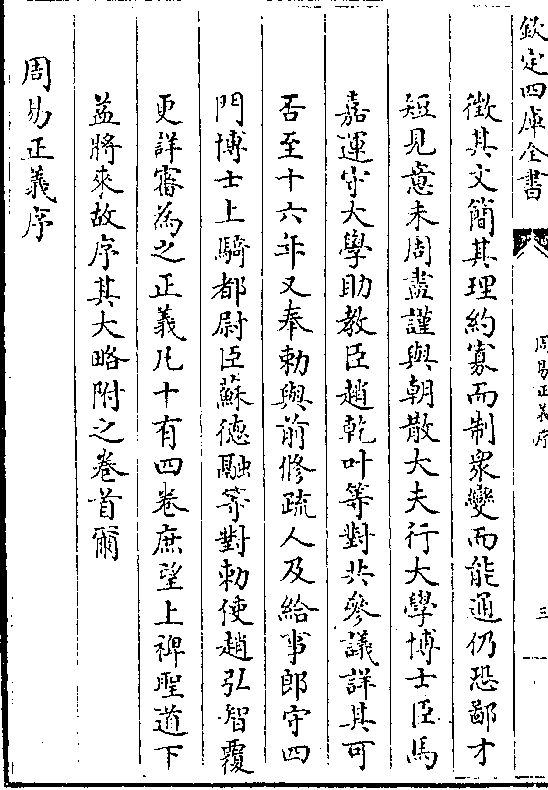 欽定四庫全書
周易正義序
三
徵其文簡其理約寡而制衆變而能通仍恐鄙才
短見意未周盡謹與朝散大夫行大學博士臣馬
嘉運守大學助教臣趙乾叶等對共參議詳其可
否至十六年又奉勅與前修疏人及給事郎守四
門博士上騎都尉臣蘇德融等對勅使趙弘智覆
更詳審為之正義凡十有四卷庶望上裨聖道下
益將來故序其大略附之卷首爾
周易正義序